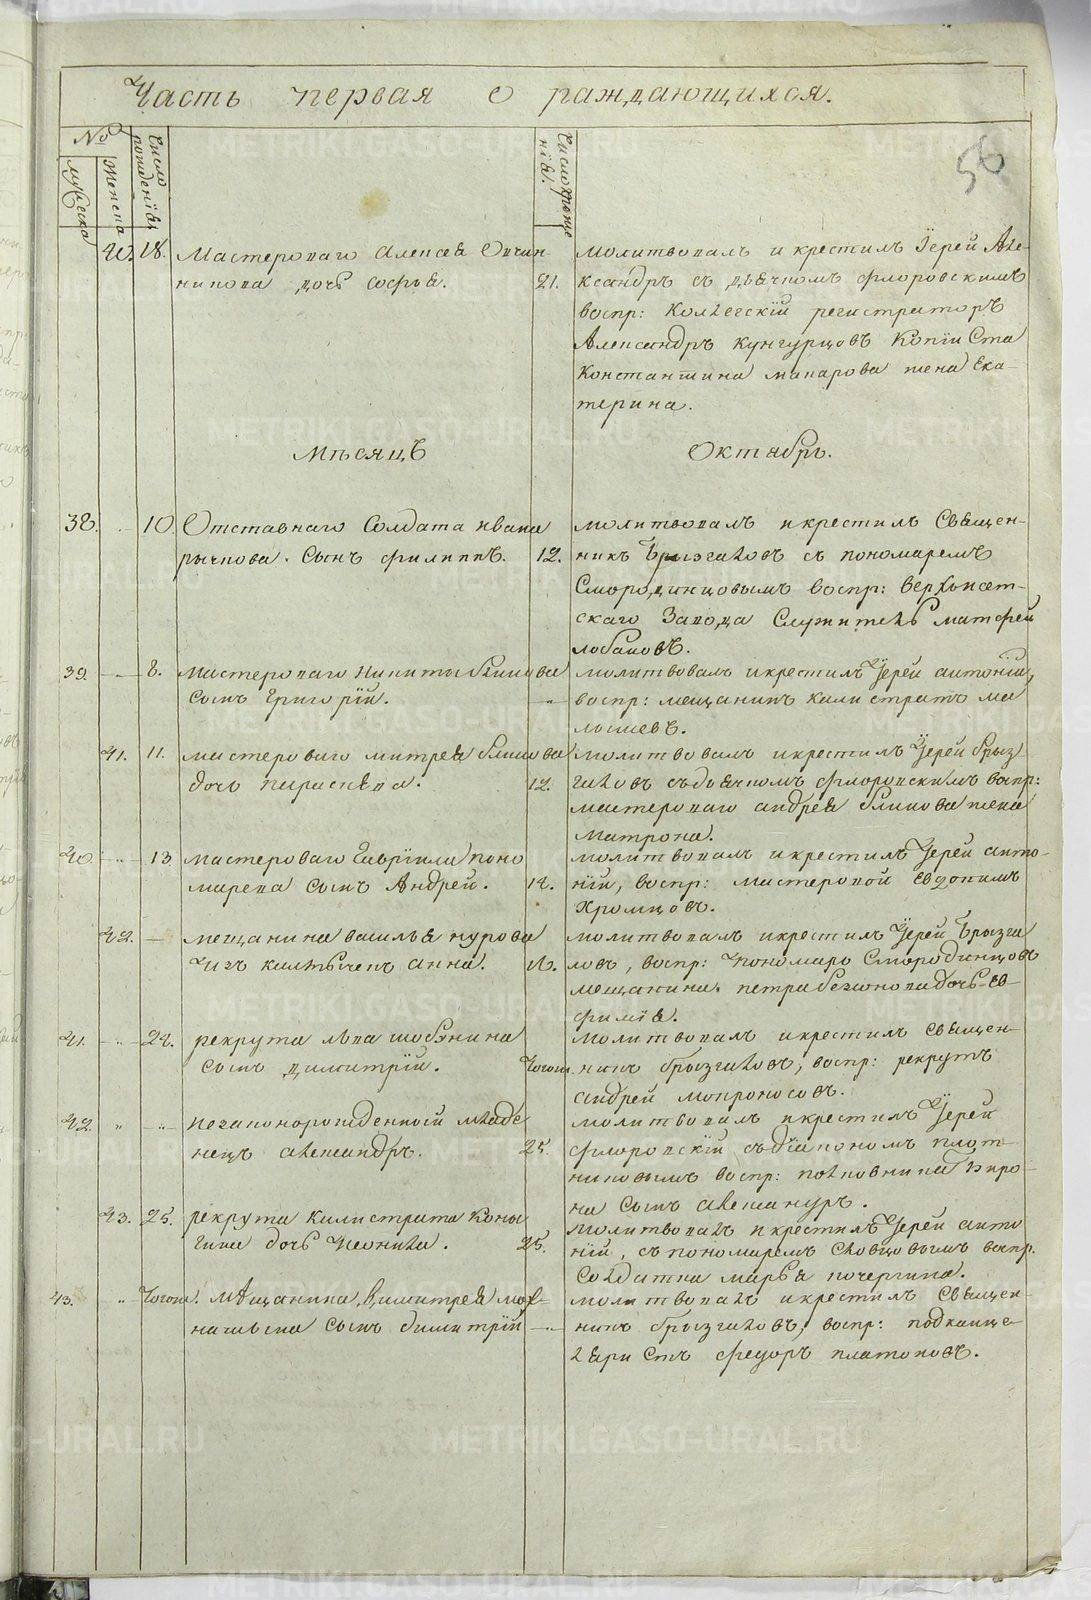 Часть первая о раждающихся.
№
Число рождения
Число крещения.
Мужеска
Женска
56
40. 18. Мастероваго Алексея Овчин-
никова дочь софья. 21.
молитвовалъ и крестилъ Іерей Але-
ксандръ съ дьячкомъ флоровскимъ
воспр: Коллегскій регистраторъ
Александръ Кунгурцовъ Копіиста
Константина макарова жена Ека-
терина.
Мѣсяцъ Октябрь.
38. 10. Отставнаго Солдата ивана
рычкова. Сынъ филиппъ. 12.
молитвовалъ и крестилъ Священ-
никъ Брызгаловъ съ пономаремъ
Смородинцовымъ воспр: верхъисет-
скаго Завода Служитель матфей
лобановъ.
39. 8. мастероваго никиты блинова
сынъ Григорій.
молитвовалъ и крестилъ Іерей антоній,
воспр: мещанинъ калистратъ ма
лышевъ.
41. 11. мастероваго митрея блинова
дочь параскева. 12.
молитвовалъ и крестилъ Іерей брыз
галовъ съ дьячкомъ флоровскимъ воспр:
мастероваго андрея блинова жена
матрона.
40. 13. мастероваго Гаврiила поно
марева сынъ Андрей. 14.
молитвовалъ и крестилъ Іерей анто-
ній, воспр: мастеровой евдокимъ
Хромцовъ.
42. мещанина василья
анна. 16.
молитвовалъ и крестилъ Іерей Брызга
ловъ, воспр: пономарь Смородинцовъ
мещанина петра дочь ев-
фимія.
41. 24. рекрута льва шобанина
сынъ димитрій. Тогож.
молитвовалъ и крестилъ священ-
никъ брызгаловъ, воспр: рекрутъ
андрей мокроносовъ.
42. незаконорожденной младе
нецъ александръ. 25.
молитвовалъ и крестилъ Іерей
флоровскій съ діакономъ плот-
никовымъ воспр: полковника
на сынъ
43. 25. рекрута калистрата коны
гина дочь Неонила. 25.
молитвовалъ и крестилъ Іерей анто
ній, съ пономаремъ воспр.
Солдатка марья кочергина.
43. Тогож. мещанина димитрея
сынъ димитрій
молитвовалъ и крестилъ Священ-
никъ брызгаловъ, воспр: подканце-
ляристъ федоръ платоновъ.
METRIKI.GASO-URAL.RU